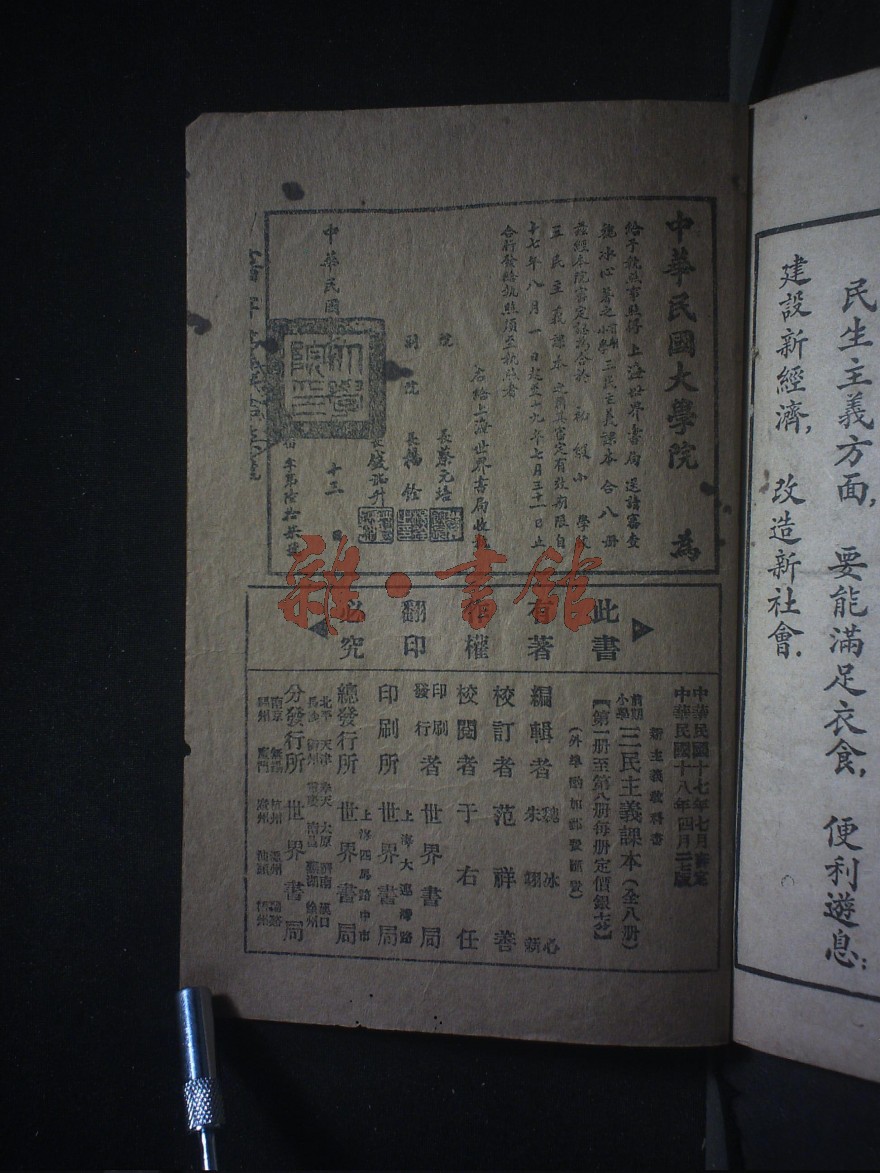 民生主義方面，要能滿足衣食，便利遊息；
建設新經濟，改造新社會．
中華民國大學院 為
給予執照事照得上海世界書局送請審查
魏冰心著之前期小學三民主義課本合八冊
茲經本院審定認為合於初級小學校
三民主義課本之用其審定有效期限自
十七年八月一日起至十九年七月三十一日止
合行發給執照須至執照者
右給上海世界書局收執
院長蔡元培
副院長楊銓
長錢端升
中華民國 十三日
字第陸拾柒號
大學院印
雜·書館
此書
有著
作權
翻印
必究
中華民國十七年七月審定
中華民國十八年四月 版
新主義教科書
前期小學 三民主義課本（全八冊）
【第一冊至第八冊每冊定價銀 分】
（外埠酌加郵費匯費）
編輯者 魏冰心 朱翊新
校訂者 范祥善
校閱者 于右任
印刷發行者 世界書局
印刷所 上海大連灣路 世界書局
總發行所 上海四馬路中市 世界書局
分發行所 世界書局
北平 天津 奉天 太原 濟南 漢口
長沙 衢州 南昌 蕪湖 徐州
南京 無錫 杭州 溫州
福州 廈門 廣州 汕頭